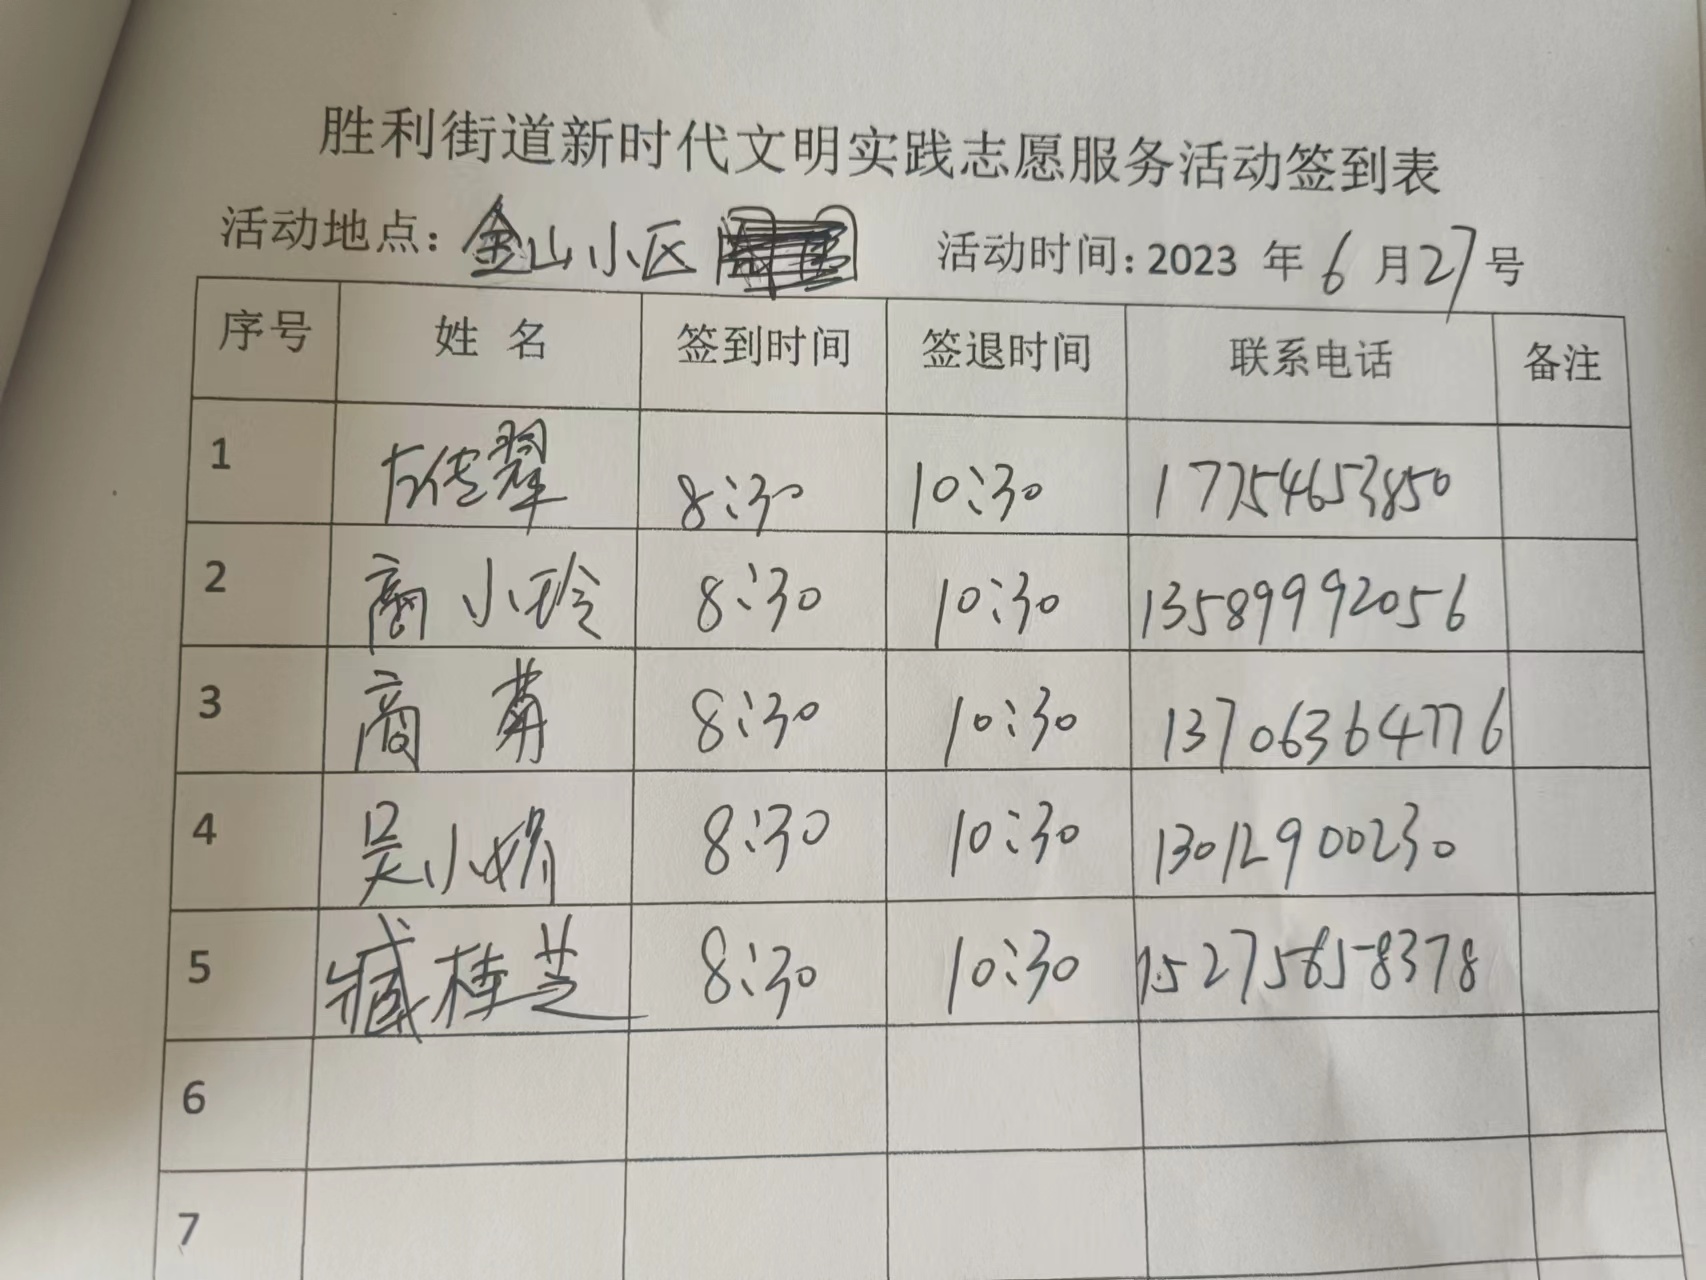 胜利街道新时代文明实践志愿服务活动签到表
活动地点：金山小区 活动时间：2023 年 6 月 27 号
序号 姓 名 签到时间 签退时间 联系电话 备注
1 左传翠 8:30 10:30 17754653850
2 商小玲 8:30 10:30 13589992056
3 商 8:30 10:30 13706364776
4 吴小娟 8:30 10:30 13012900230
5 臧桂芝 8:30 10:30 15275658378
6
7